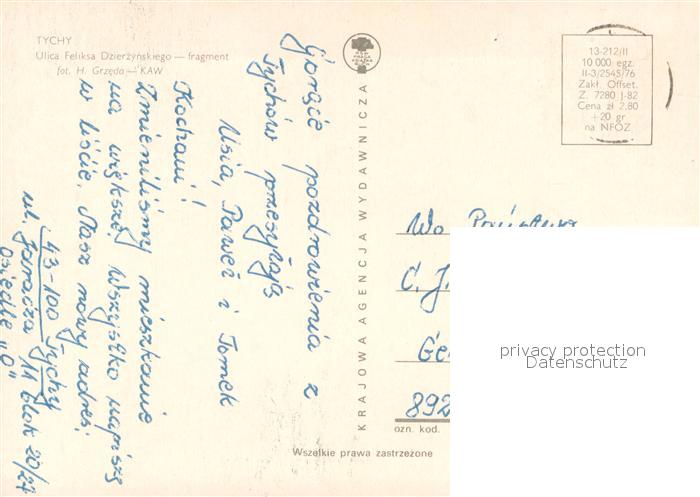 TYCHY
Ulica Feliksa Dzierżyńskiego — fragment
fot. H. Grzęda — KAW
Gorące pozdrowienia z
Tychów przesyłają
Usia, Paweł i Tomek
Kochani!
Zmieniliśmy mieszkanie
na większe. Wszystko napiszę
w liście. Nasz nowy adres:
43-100 Tychy
ul. Jaracza 11 blok 20/27
Osiedle "O"
KRAJOWA AGENCJA WYDAWNICZA
13-212/II
10 000 egz.
II-3/2545/76
Zakł. Offset.
Z. 7280 J-82
Cena zł 2,80
+20 gr
na NFOZ
Wo.
C. J.
Ge
892
ozn. kod.
Wszelkie prawa zastrzeżone
privacy protection
Datenschutz